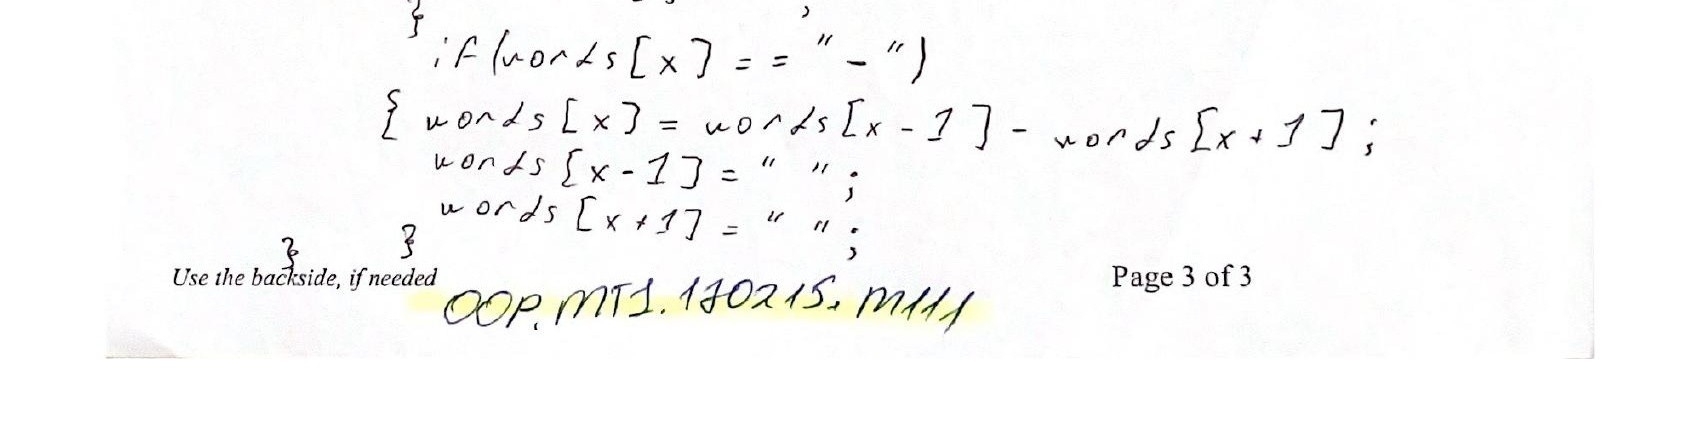 }
if (words[x] == "-")
{ words[x] = words[x-1] - words[x+1];
words[x-1] = " ";
words[x+1] = " ";
} }
Use the backside, if needed
Page 3 of 3
OOP.MT1.170215.M111